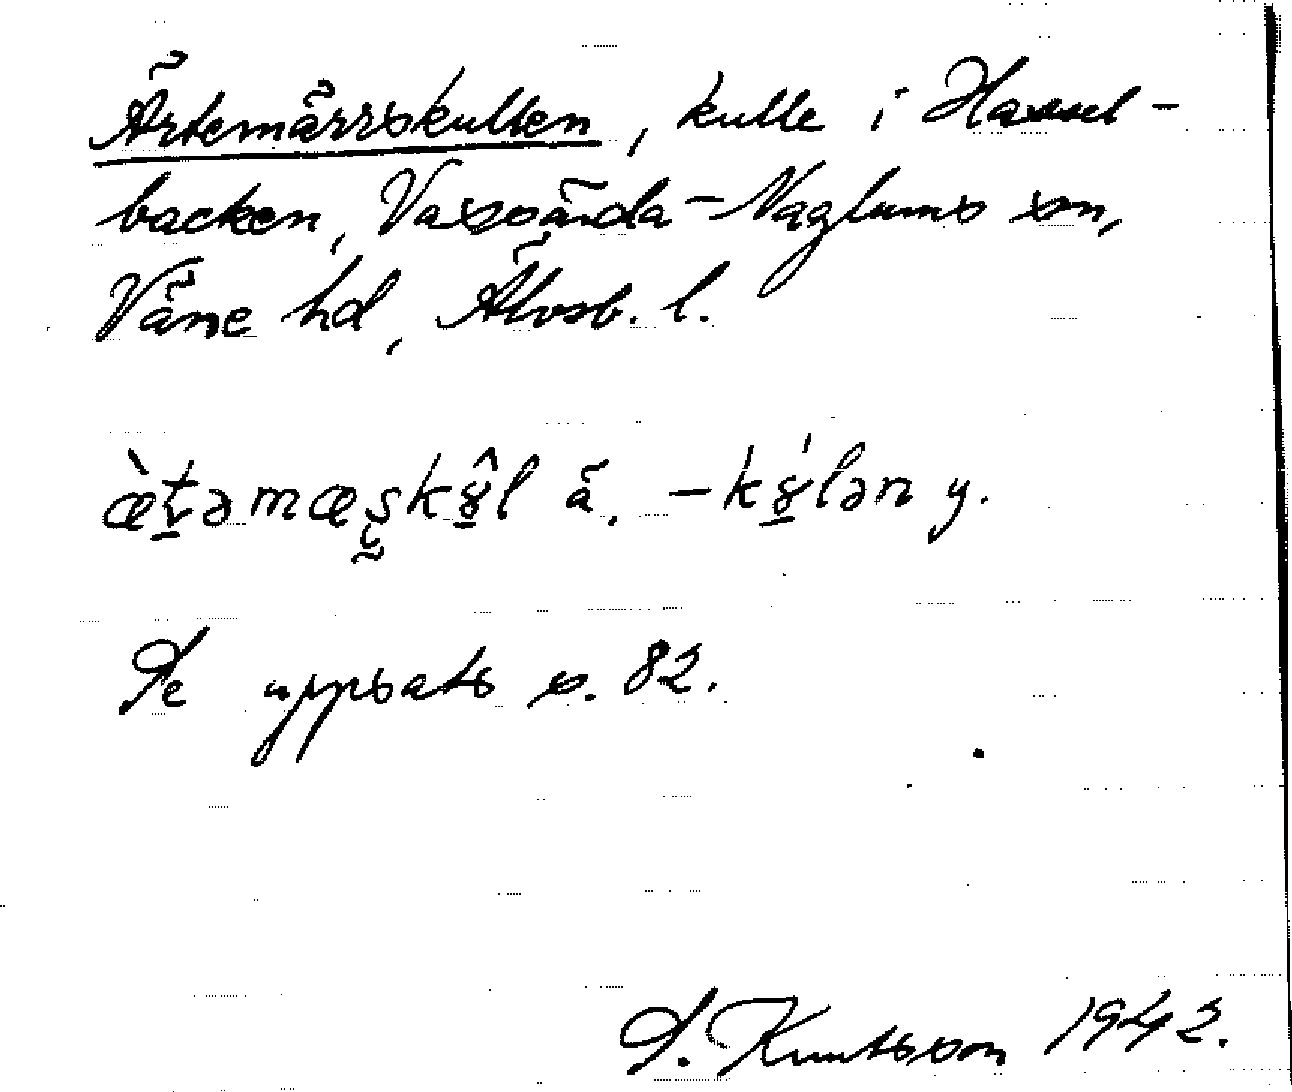 Ärtemärrskullen, kulle i Hassel-
backen, Vassända-Naglums sn,
Väne hd, Älvsb. l.
æ̀t̠əmæşkɣ̠̂l ä. -kɣ̠́lən y.
Se uppsats s. 82.
S. Knutsson 1942.